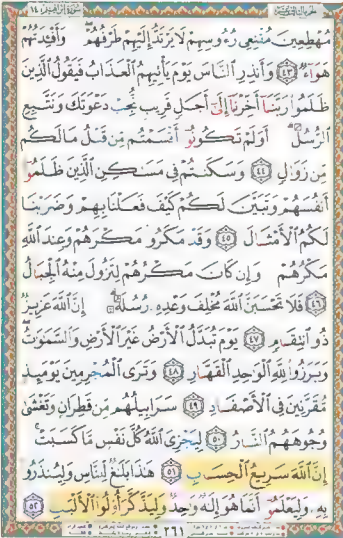 سورة إبراهيم ١٤
مُهْطِعِينَ مُقْنِعِى رُءُوسِهِمْ لَا يَرْتَدُّ إِلَيْهِمْ طَرْفُهُمْ ۖ وَأَفْـِٔدَتُهُمْ
هَوَآءٌ ٤٣ وَأَنذِرِ ٱلنَّاسَ يَوْمَ يَأْتِيهِمُ ٱلْعَذَابُ فَيَقُولُ ٱلَّذِينَ
ظَلَمُوا۟ رَبَّنَآ أَخِّرْنَآ إِلَىٰٓ أَجَلٍ قَرِيبٍ نُّجِبْ دَعْوَتَكَ وَنَتَّبِعِ
ٱلرُّسُلَ ۗ أَوَلَمْ تَكُونُوٓا۟ أَقْسَمْتُم مِّن قَبْلُ مَا لَكُم
مِّن زَوَالٍ ٤٤ وَسَكَنتُمْ فِى مَسَٰكِنِ ٱلَّذِينَ ظَلَمُوٓا۟
أَنفُسَهُمْ وَتَبَيَّنَ لَكُمْ كَيْفَ فَعَلْنَا بِهِمْ وَضَرَبْنَا
لَكُمُ ٱلْأَمْثَالَ ٤٥ وَقَدْ مَكَرُوا۟ مَكْرَهُمْ وَعِندَ ٱللَّهِ
مَكْرُهُمْ وَإِن كَانَ مَكْرُهُمْ لِتَزُولَ مِنْهُ ٱلْجِبَالُ
٤٦ فَلَا تَحْسَبَنَّ ٱللَّهَ مُخْلِفَ وَعْدِهِۦ رُسُلَهُۥٓ ۗ إِنَّ ٱللَّهَ عَزِيزٌ
ذُو ٱنتِقَامٍ ٤٧ يَوْمَ تُبَدَّلُ ٱلْأَرْضُ غَيْرَ ٱلْأَرْضِ وَٱلسَّمَٰوَٰتُ ۖ
وَبَرَزُوا۟ لِلَّهِ ٱلْوَٰحِدِ ٱلْقَهَّارِ ٤٨ وَتَرَى ٱلْمُجْرِمِينَ يَوْمَئِذٍ
مُّقَرَّنِينَ فِى ٱلْأَصْفَادِ ٤٩ سَرَابِيلُهُم مِّن قَطِرَانٍ وَتَغْشَىٰ
وُجُوهَهُمُ ٱلنَّارُ ٥٠ لِيَجْزِىَ ٱللَّهُ كُلَّ نَفْسٍ مَّا كَسَبَتْ ۚ
إِنَّ ٱللَّهَ سَرِيعُ ٱلْحِسَابِ ٥١ هَٰذَا بَلَٰغٌ لِّلنَّاسِ وَلِيُنذَرُوا۟
بِهِۦ وَلِيَعْلَمُوٓا۟ أَنَّمَا هُوَ إِلَٰهٌ وَٰحِدٌ وَلِيَذَّكَّرَ أُو۟لُوا۟ ٱلْأَلْبَٰبِ ٥٢
٢٦١